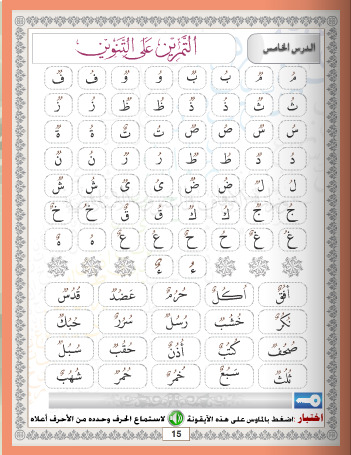 الدرس الخامس التَّمْرِيْنُ عَلَى التَّنْوِيْنِ
مُ مٌ بُ بٌ وُ وٌ فُ فٌ
ثُ ثٌ ذُ ذٌ ظُ ظٌ زُ زٌ
سُ سٌ صُ صٌ تُ تٌ ةُ ةٌ
دُ دٌ طُ طٌ رُ رٌ نُ نٌ
لُ لٌ ضُ ضٌ ىُ ىٌ شُ شٌ
جُ جٌ كُ كٌ قُ قٌ خُ خٌ
غُ غٌ حُ حٌ عُ عٌ هُ هٌ
ءُ ءٌ
أُفُقٌ أُكُلٌ حُرُمٌ عَضُدٌ قُدُسٌ
نُكُرٌ خُشُبٌ رُسُلٌ سُرُرٌ حُبُكٌ
صُحُفٌ كُتُبٌ أُذُنٌ حُقُبٌ سُبُلٌ
ثُلُثٌ سَبُعٌ خُمُرٌ حُمُرٌ شُهُبٌ
إختبار : اضغط بالماوس على هذه الأيقونة لاستماع الحرف وحدده من الأحرف أعلاه
15